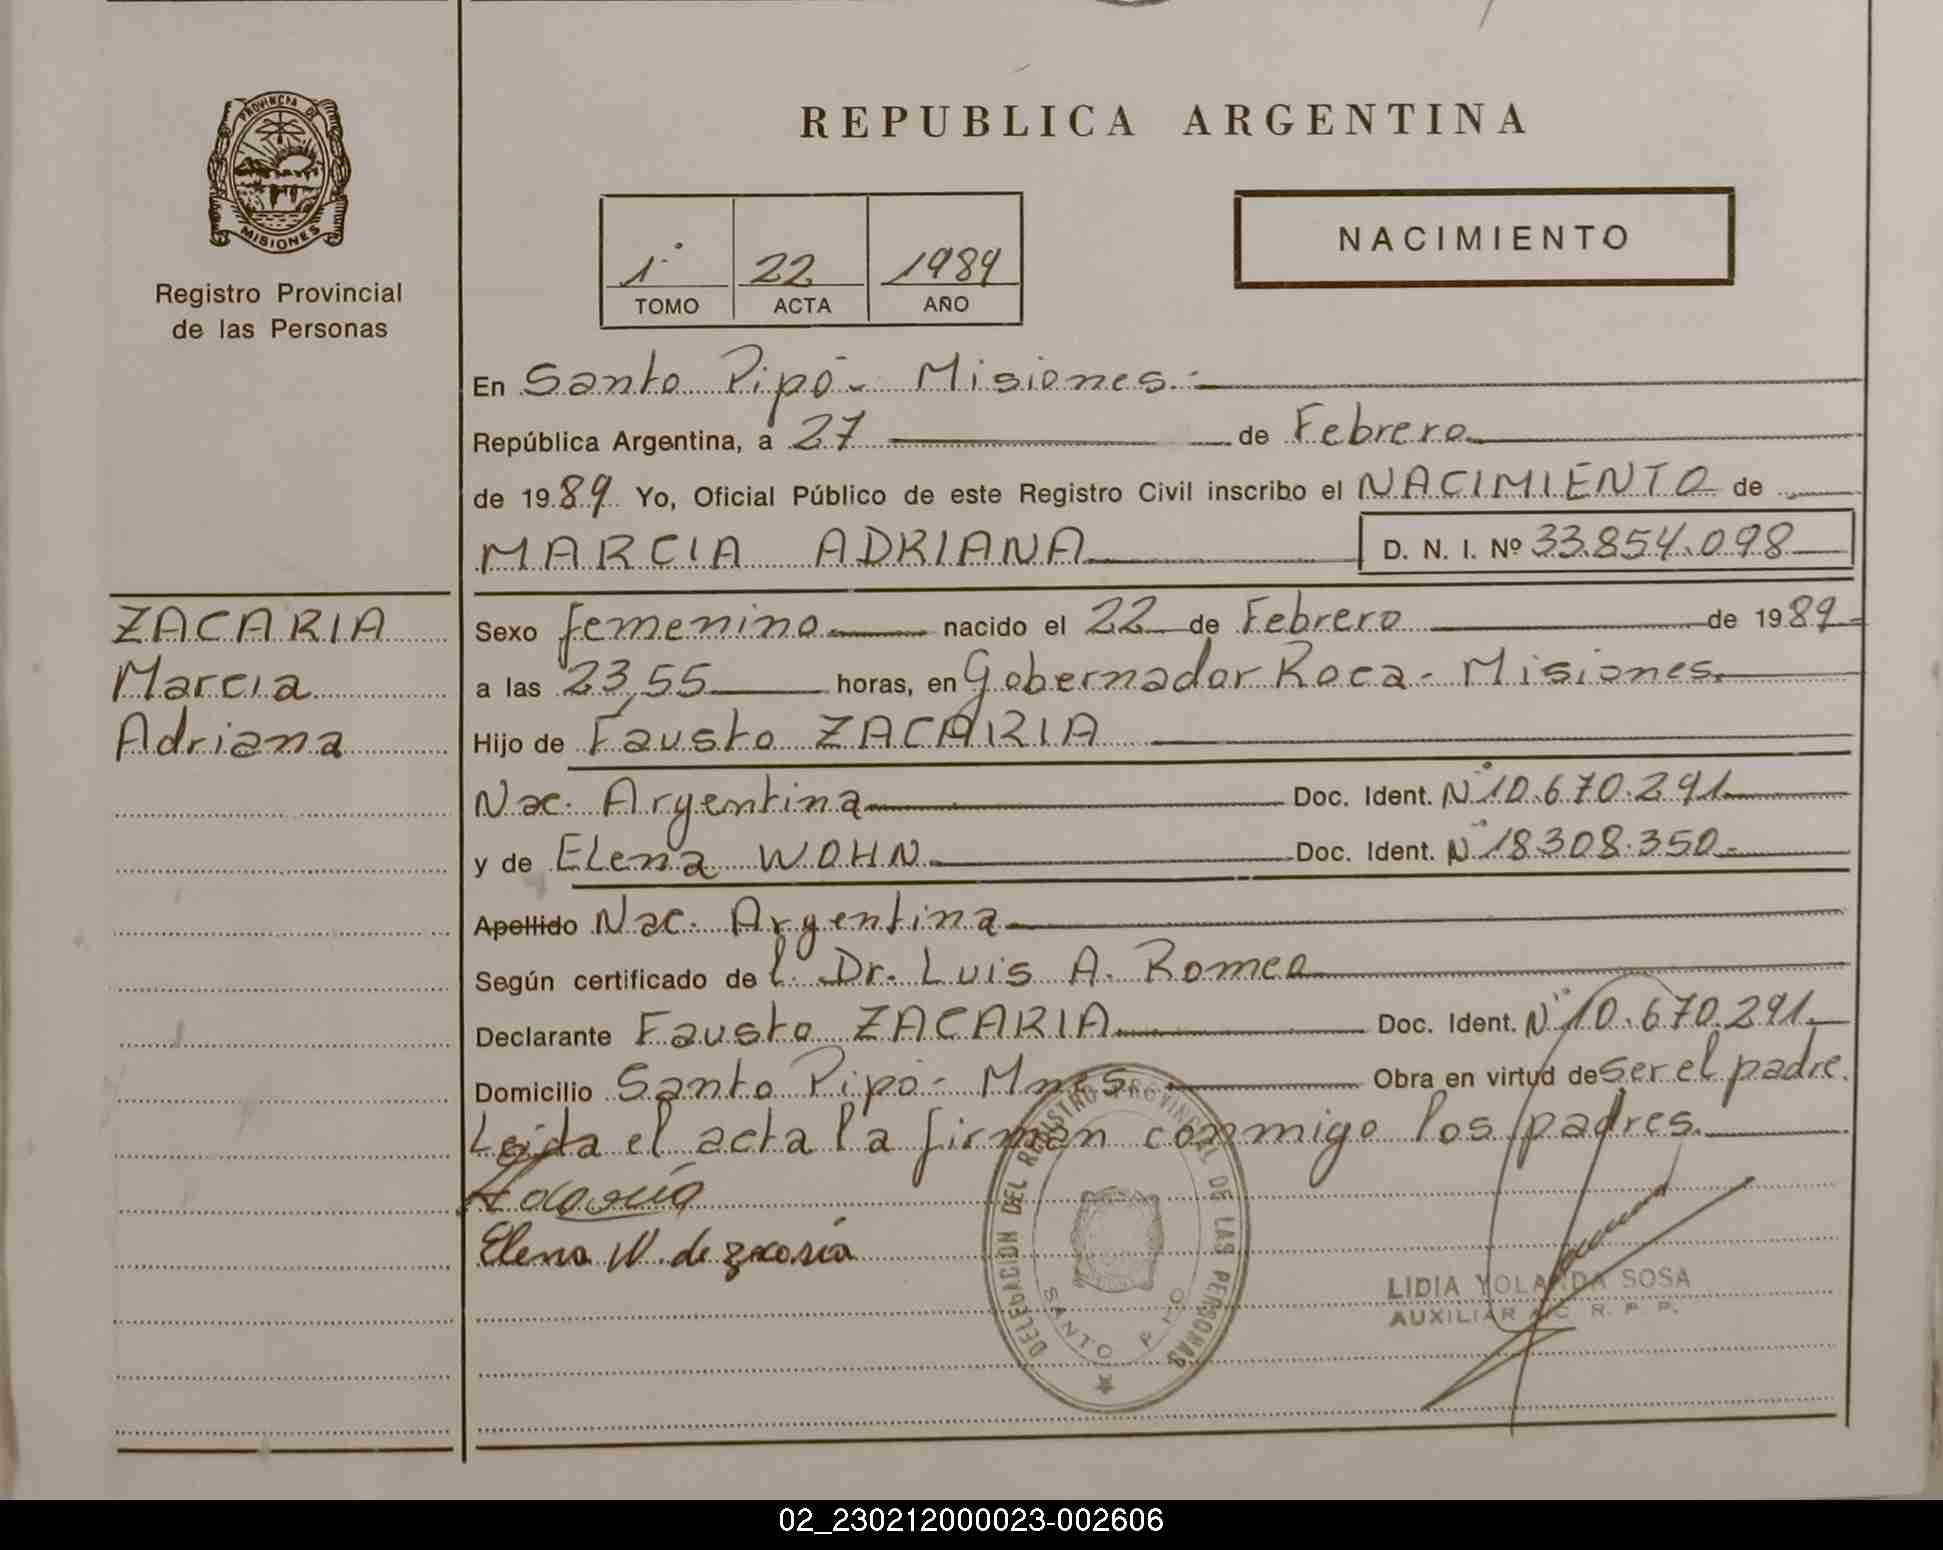 PROVINCIA DE
MISIONES
Registro Provincial
de las Personas
REPUBLICA ARGENTINA
1° 22 1989
TOMO ACTA AÑO
NACIMIENTO
En Santo Pipó - Misiones.-
República Argentina, a 27 de Febrero
de 1989 Yo, Oficial Público de este Registro Civil inscribo el NACIMIENTO de
MARCIA ADRIANA D. N. I. Nº 33.854.098
ZACARIA
Marcia
Adriana
Sexo femenino nacido el 22 de Febrero de 1989-
a las 23,55 horas, en Gobernador Roca - Misiones.
Hijo de Fausto ZACARIA
Nac. Argentina Doc. Ident. N° 10.670.291
y de Elena WOHN Doc. Ident. N° 18.308.350-
Apellido Nac. Argentina
Según certificado del Dr. Luis A. Romeo
Declarante Fausto ZACARIA Doc. Ident. N° 10.670.291
Domicilio Santo Pipó - Mnes Obra en virtud de ser el padre.
Leida el acta la firman conmigo los padres.
Elena W. de Zacaría
DELEGACION DEL REGISTRO PROVINCIAL DE LAS PERSONAS
SANTO PIPO
LIDIA YOLANDA SOSA
AUXILIAR R. P. P.
02_230212000023-002606